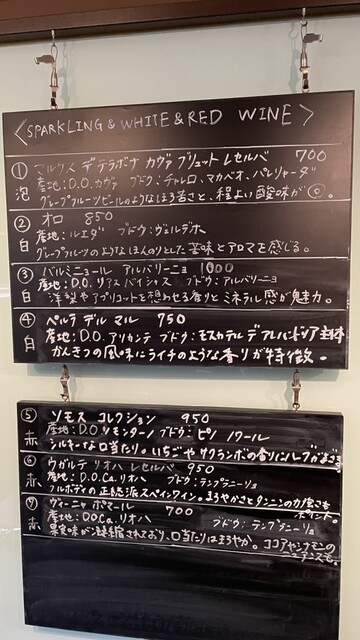 <SPARKLING & WHITE & RED WINE>
① マルケス デ テラボナ カヴァ ブリュット レセルバ 700
泡 産地:D.O.カヴァ ブドウ:チャレロ、マカベオ、パレリャーダ
グレープフルーツピールのようなほろ苦さと、程よい酸味が◎。
② オロ 850
白 産地:ルエダ ブドウ:ヴェルデホ
グレープフルーツのようなほんのりとした苦味とアロマを感じる。
③ パルミニョール アルバリーニョ 1000
白 産地:D.O.リアス バイシャス ブドウ:アルバリーニョ
洋梨やアプリコットを想わせる香りとミネラル感が魅力。
④ ペルラ デル マル 750
白 産地:D.O.アリカンテ ブドウ:モスカテル デ アレハンドリア主体
かんきつの風味にライチのような香りが特徴。
⑤ ソモス コレクション 950
赤 産地:D.O ソモンターノ ブドウ:ピノ ノワール
シルキーな口当たり。いちごやサクランボの香りにハーブがまざる
⑥ ウガルテ リオハ レセルバ 950
赤 産地:D.O.Ca.リオハ ブドウ:テンプラニーリョ
フルボディの正統派スペインワイン。まろやかさとタンニンの力強さも
ポイント。
⑦ ヴィーニャ ポマール 700
赤 産地:DOCa.リオハ ブドウ:テンプラニーリョ
果実味が凝縮されており、口当たりはまろやか。ココアやシナモンの
ニュアンスも。